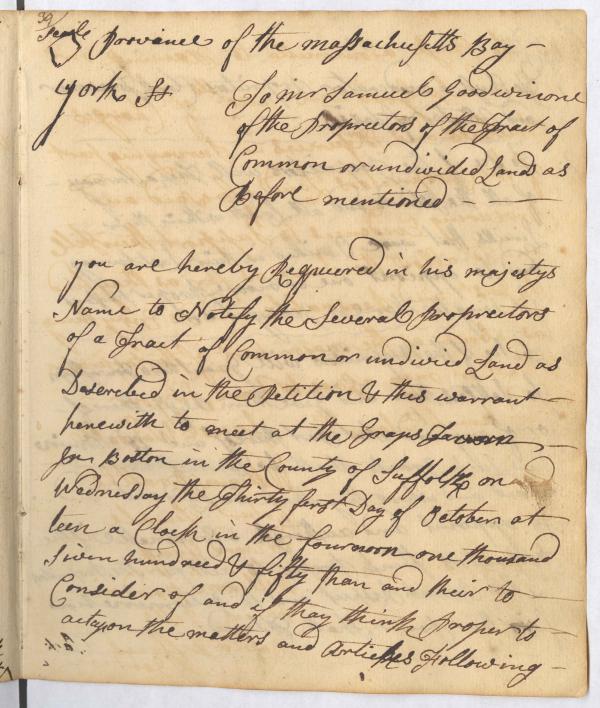 39
Seale Province of the Massachusetts Bay -
York Ss To mr Samuel Goodwin one
of the Proprietors of the Tract of
Common or undivided Land as
Before mentioned - -
you are hereby Requiered in his majestys
Name to Notify the Several Proprietors
of a Tract of Common or undivied Land as
Described in the Petition & this warrant -
herewith to meet at the Graps Tavern, -
In Boston in the County of Suffolk on
Wednesday the Thirty first Day of October at
teen a Clock in the fournoon one thousand
Siven hundreed & fifty than and their to -
Consider of and if thay think Proper to -
act upon the matters and Articles Following -